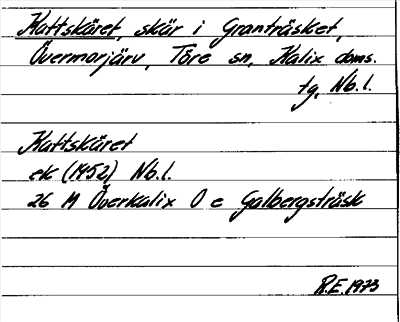 Kattskäret, skär i Granträsket,
Övermorjärv, Töre sn, Kalix doms.
tg, Nb.l.
Kattskäret
ek (1952) Nb.l.
26 M Överkalix O e Galbergsträsk
R.E. 1973